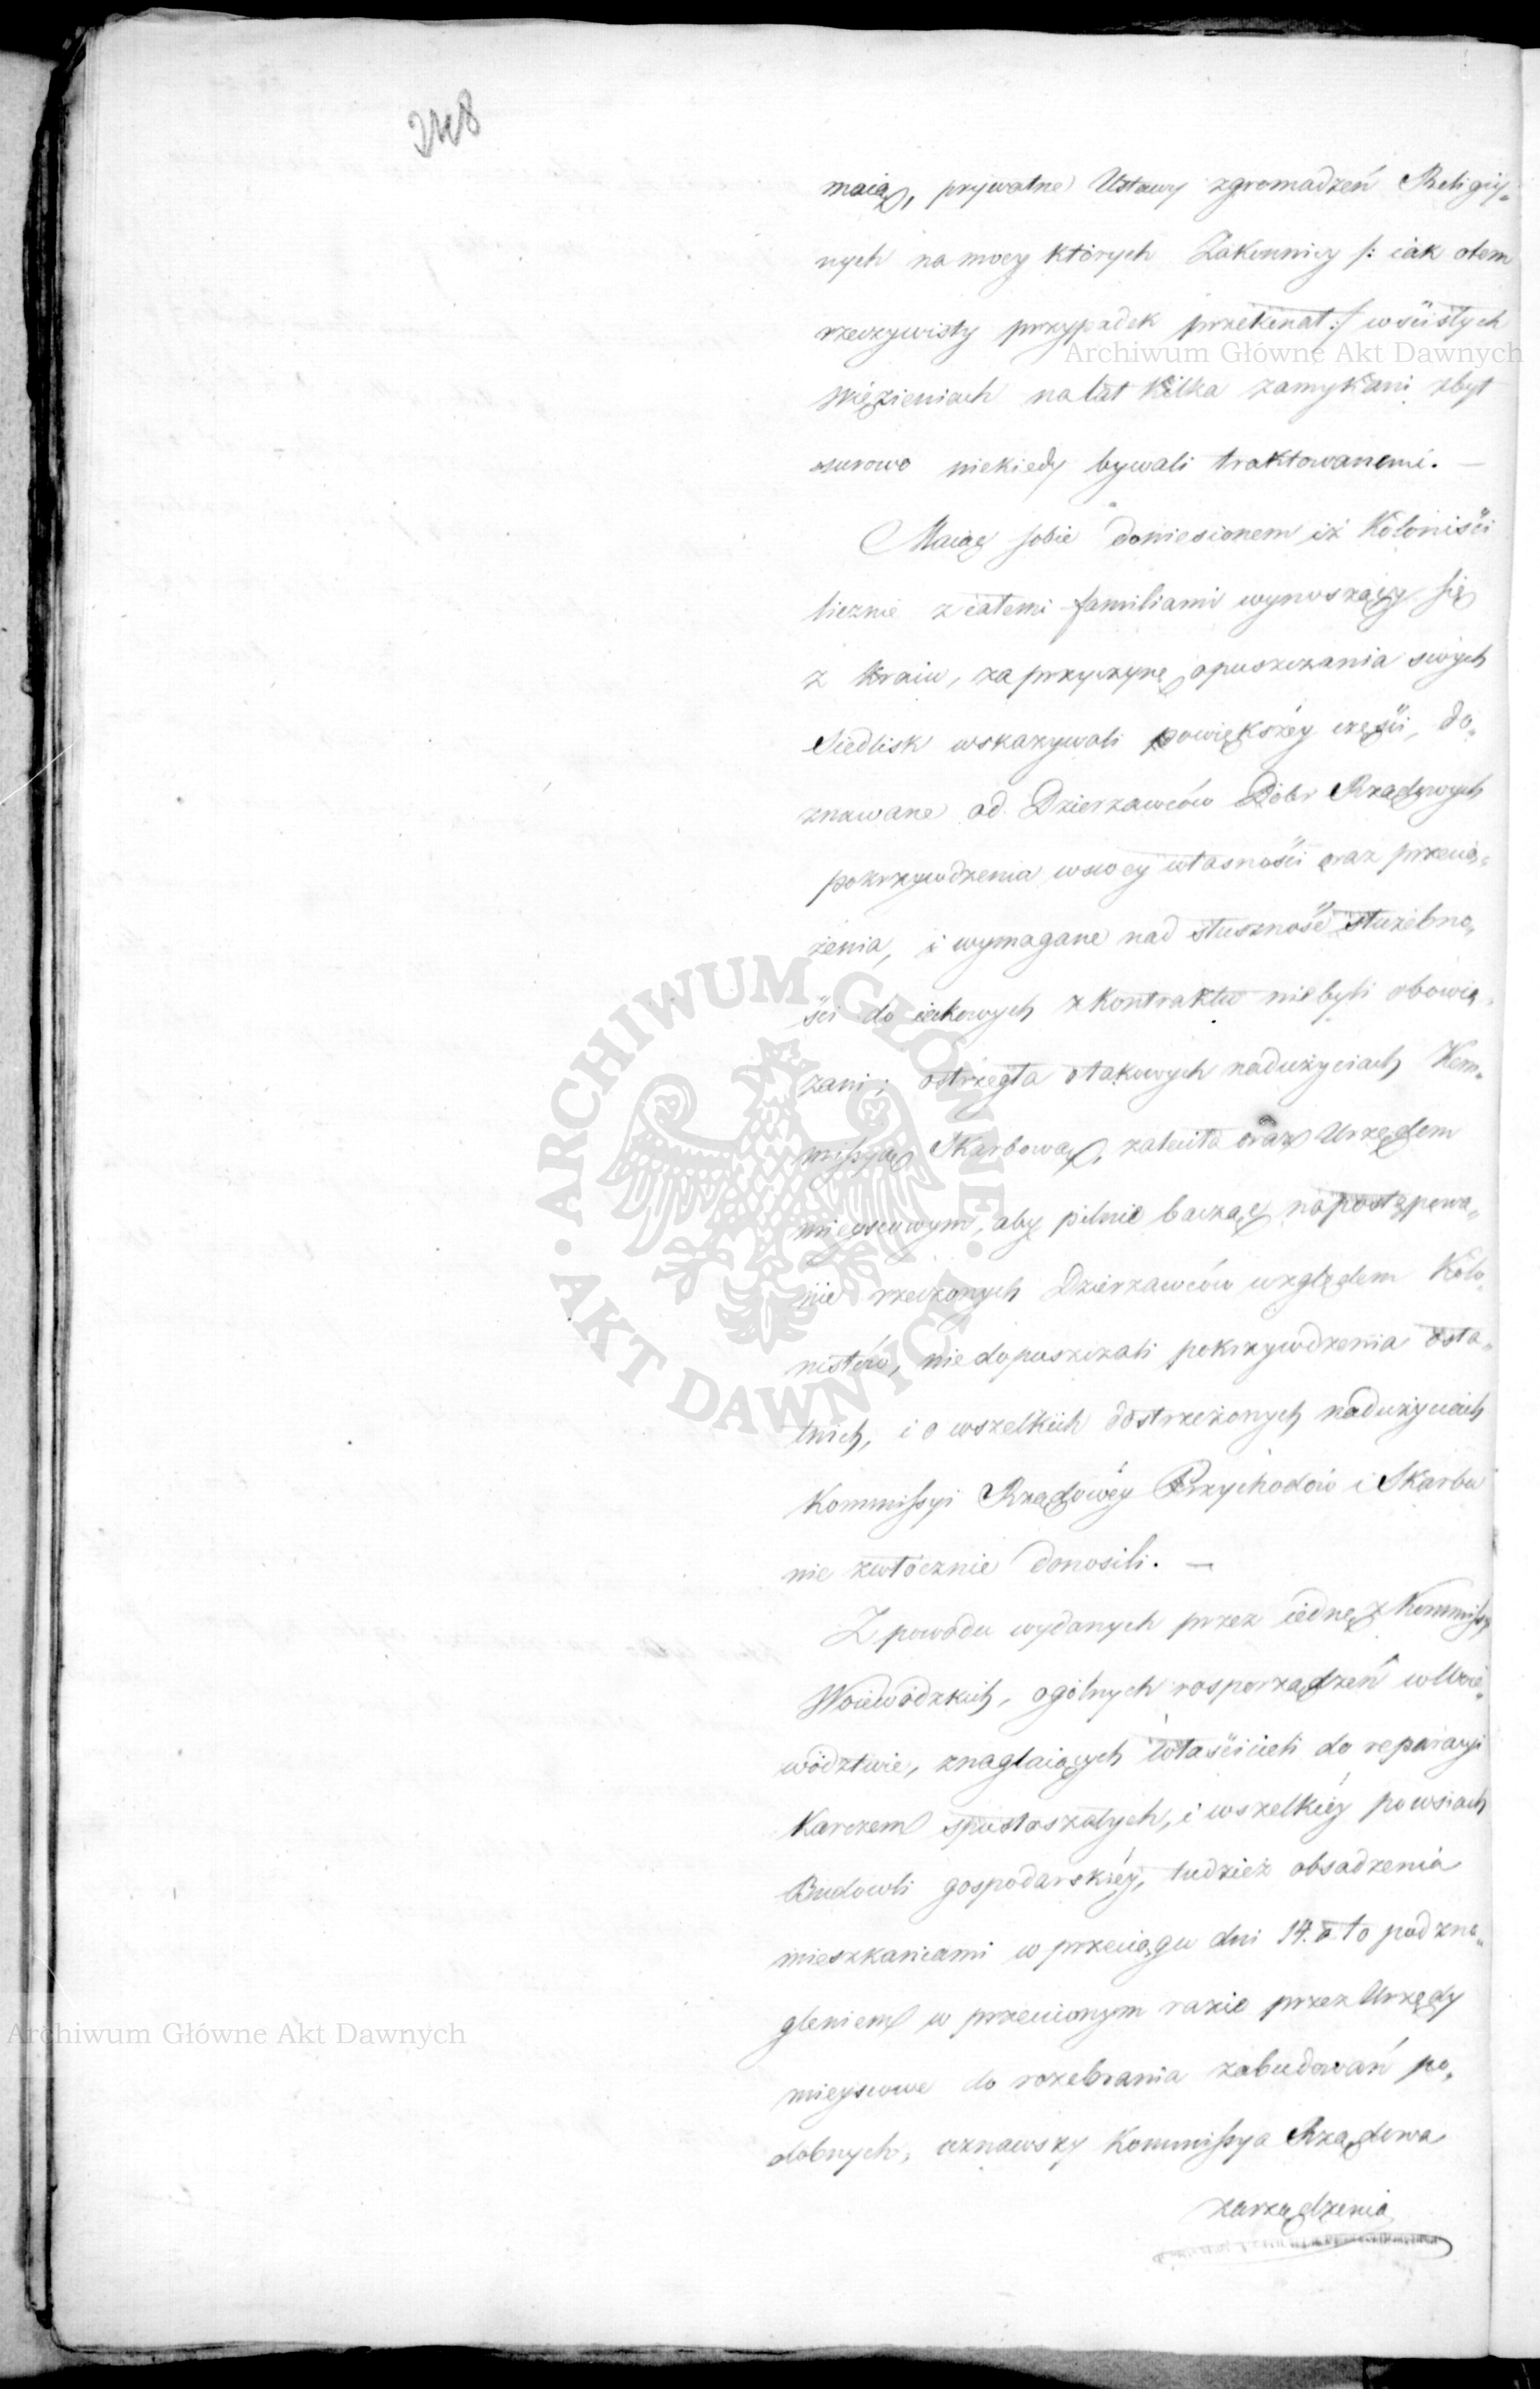 248
maią, prywatne Ustawy zgromadzeń Religiy„
nych na mocy których Zakonnicy /: iak o tem
rzeczywisty przypadek przekonał :/ w ścisłych
Archiwum Główne Akt Dawnych
Więzieniach na lat kilka zamykani zbyt
surowo niekiedy bywali traktowanemi. —
Maiąc sobie doniesionem iż Koloniści
licznie z całemi familiami wynoszący się
z Kraiu, za przyczynę opuszczania swych
Siedlisk wskazywali powiększey części, do„
znawane od Dzierzawców Dóbr Rządowych
pokrzywdzenia w swoey własności oraz przecią„
żenia, i wymagane nad słuszność służebno„
ści do iakowych z Kontraktu nie byli obowią„
zani; ostrzegła o takowych nadużyciach Kom„
missyą Skarbową, zaleciła oraz Urzędom
mieyscowym, aby pilnie bacząc na postępowa„
nie rzeczonych Dzierzawców względem Kolo„
nistów, nie dopuszczali pokrzywdzenia osta„
tnich, i o wszelkich dostrzeżonych nadużyciach
Kommissyi Rządowéy Przychodów i Skarbu
nie zwłócznie donosili. —
Z powodu wydanych przez iednę z Kommissy
Woiewódzkich, ogólnych rosporządzeń w Woie„
wództwie, znaglaiących właścicieli do reparacyi
Karczem spustoszałych, i wszelkiéy po wsiach
Budowli gospodarskiéy, tudzież obsadzenia
mieszkańcami w przeciągu dni 14. a to pod zna„
gleniem w przeciwnym razie przez Urzędy
mieyscowe do rozebrania zabudowań po„
dobnych, uznawszy Kommissya Rządowa
zarządzenia
ARCHIWUM GŁÓWNE · AKT DAWNYCH ·
Archiwum Główne Akt Dawnych